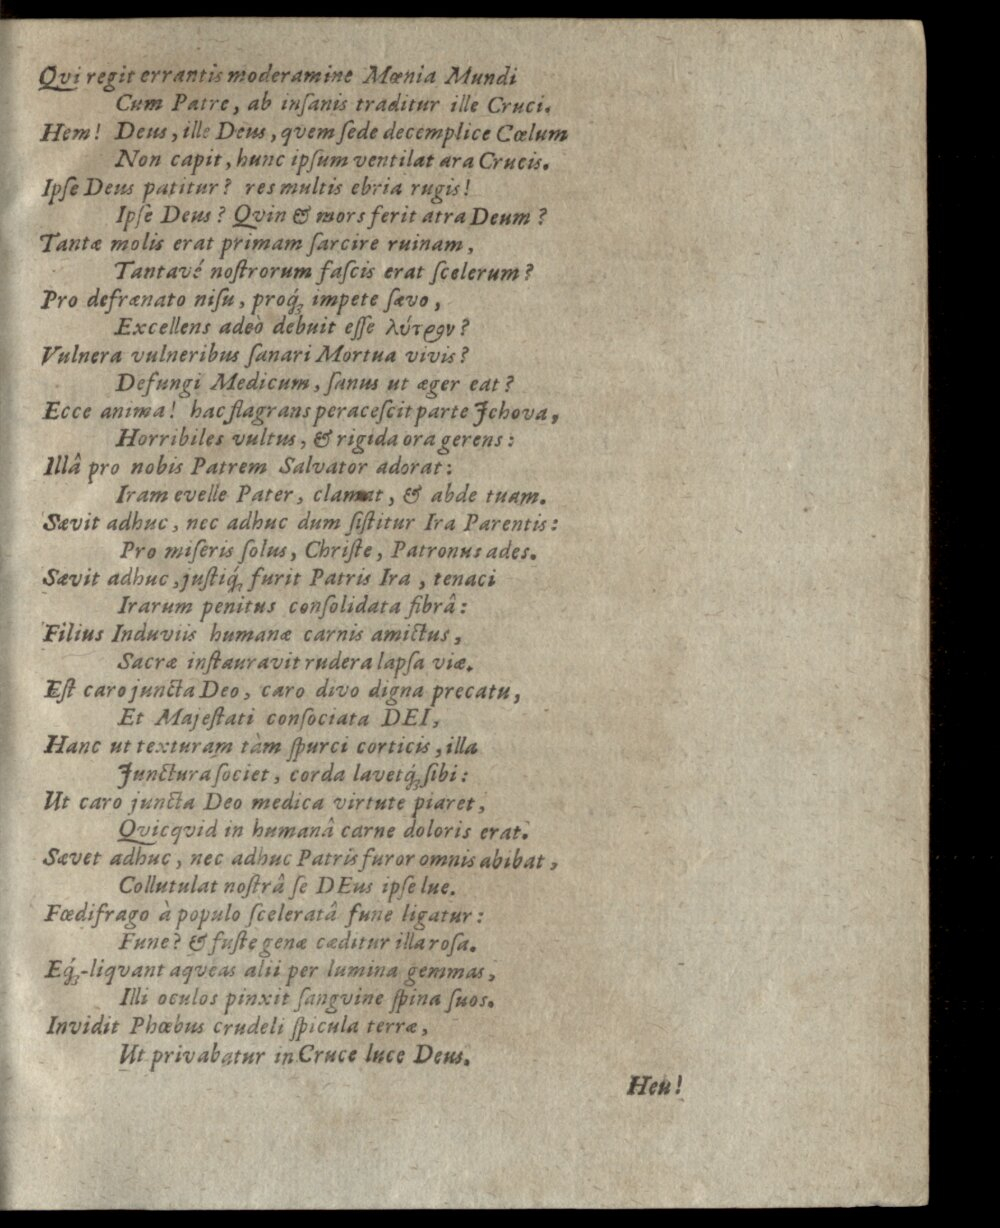 Qvi regit errantis moderamine Mœnia Mundi
Cum Patre, ab inſanis traditur ille Cruci.
Hem! Deus, ille Deus, qvem ſede decemplice Cœlum
Non capit, hunc ipſum ventilat ara Crucis.
Ipſe Deus patitur? res multis ebria rugis!
Ipſe Deus? Qvin & mors ferit atra Deum?
Tantæ molis erat primam ſarcire ruinam,
Tantavé noſtrorum faſcis erat ſcelerum?
Pro defrænato niſu, proq́ꝫ impete ſævo,
Excellens adeò debuit eſſe λύτρον?
Vulnera vulneribus ſanari Mortua vivis?
Defungi Medicum, ſanus ut æger eat?
Ecce anima! hac flagrans peraceſcit parte Jehova,
Horribiles vultus, & rigida ora gerens:
Illâ pro nobis Patrem Salvator adorat:
Iram evelle Pater, clamat, & abde tuam.
Sævit adhuc, nec adhuc dum ſiſtitur Ira Parentis:
Pro miſeris ſolus, Chriſte, Patronus ades.
Sævit adhuc, juſtiq́ꝫ furit Patris Ira, tenaci
Irarum penitus conſolidata fibrâ:
Filius Induviis humanæ carnis amictus,
Sacræ inſtauravit rudera lapſa viæ.
Eſt caro juncta Deo, caro divo digna precatu,
Et Majeſtati conſociata DEI,
Hanc ut texturam tàm ſpurci corticis, illa
Junctura ſociet, corda lavetq́ꝫ ſibi:
Ut caro juncta Deo medica virtute piaret,
Qvicqvid in humanâ carne doloris erat.
Sævet adhuc, nec adhuc Patris furor omnis abibat,
Collutulat noſtrâ ſe DEus ipſe lue.
Fœdifrago à populo ſceleratâ fune ligatur:
Fune? & fuſte genæ cæditur illa roſa.
Eq́ꝫ-liqvant aqveas alii per lumina gemmas,
Illi oculos pinxit ſangvine ſpina ſuos.
Invidit Phœbus crudeli ſpicula terræ,
Ut privabatur in Cruce luce Deus.
Heu!